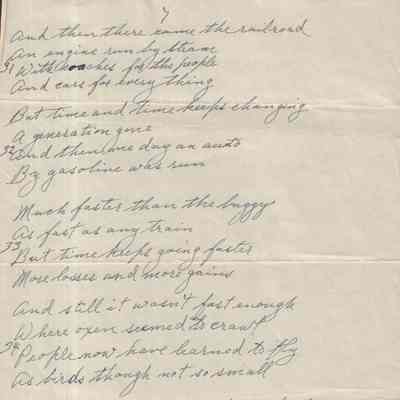 7
And then there came the railroad
An engine run by steam
31 With coaches for the people
And cars for every thing
But time and time keeps changing
A generation gone
32 And then one day an auto
By gasoline was run
Much faster than the buggy
As fast as any train
33 But time keeps going faster
More losses and more gains
And still it wasn't fast enough
Where oxen seemed to crawl
34 People now have learned to fly
As birds though not so small